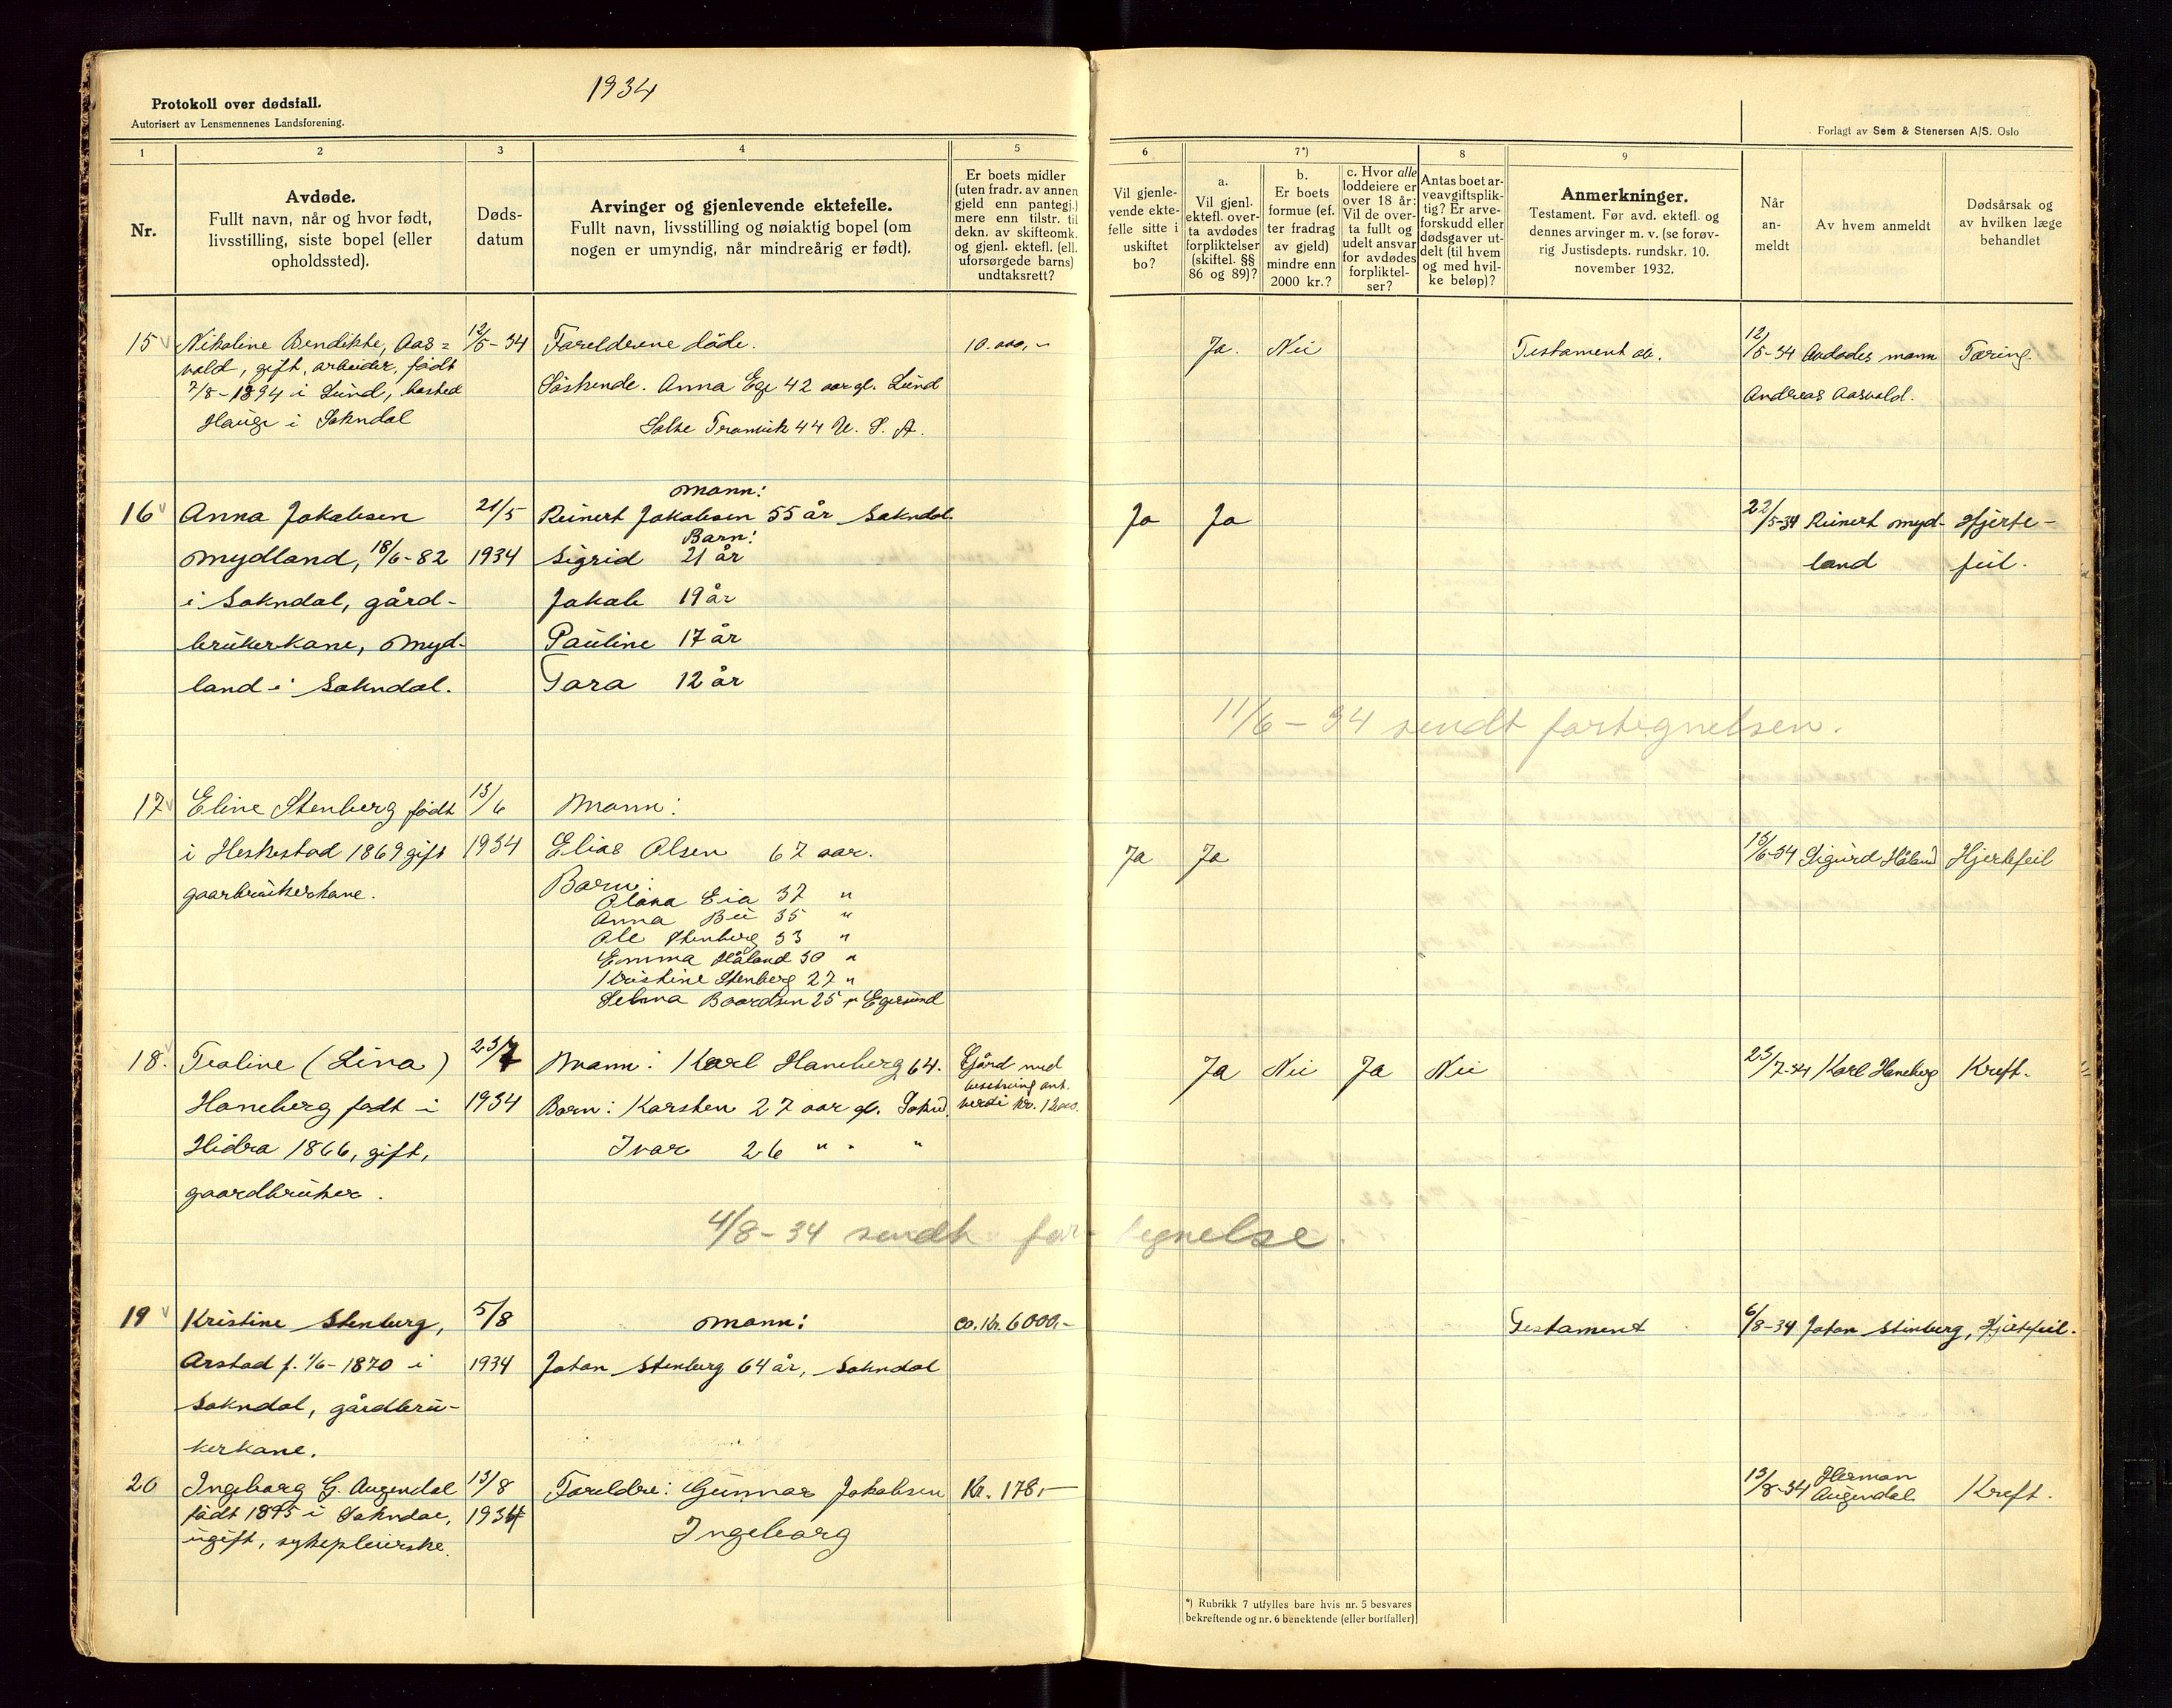 1934
Protokoll over dødsfall.
Autorisert av Lensmennenes Landsforening.
Forlagt av Sem & Stenersen A/S. Oslo
1 2 3 4 5 6 7*) 8 9
Nr.
Avdøde.
Fullt navn, når og hvor født,
livsstilling, siste bopel (eller
opholdssted).
Døds-
datum
Arvinger og gjenlevende ektefelle.
Fullt navn, livsstilling og nøiaktig bopel (om
nogen er umyndig, når mindreårig er født).
Er boets midler
(uten fradr. av annen
gjeld enn pantegj.)
mere enn tilstr. til
dekn. av skifteomk.
og gjenl. ektefl. (ell.
uforsørgede barns)
undtaksrett?
Vil gjenle-
vende ekte-
felle sitte i
uskiftet
bo?
a.
Vil gjenl.
ektefl. over-
ta avdødes
forpliktelser
(skiftel. §§
86 og 89)?
b.
Er boets
formue (ef.
ter fradrag
av gjeld)
mindre enn
2000 kr.?
c. Hvor alle
loddeiere er
over 18 år:
Vil de over-
ta fullt og
udelt ansvar
for avdødes
forpliktel-
ser?
Antas boet ar-
veavgiftsplik-
tig? Er arve-
forskudd eller
dødsgaver ut-
delt (til hvem
og med hvil-
ke beløp)?
Anmerkninger.
Testament. Før avd. ektefl. og
dennes arvinger m. v. (se forøv-
rig Justisdepts. rundskr. 10.
november 1932.
Når
an-
meldt
Av hvem anmeldt
Dødsårsak og
av hvilken læge
behandlet
15
Nikoline Bendikte, Aas=
vold, gift, arbeider, født
7/8-1894 i Lund, bosted
Hauge i Sokndal
12/5-34
Foreldrene døde.
Søskende. Anna Ege 42 aar gl. Lund
Tramvik 44 U. S. A.
10.000,-
Ja.
Nei
Testament
12/5-34
Avdødes mann
Andreas Aasvold.
Tæring.
16
Anna Jakobsen
Mydland, 18/6-82
i Sokndal, gård-
brukerkone, Myd-
land i Sokndal.
21/5
1934
Mann:
Reinert Jakobsen 55 år Sokndal.
Barn:
Sigrid 21 år
Jakob 19 år
Pauline 17 år
Tora 12 år
Ja
Ja
22/5-34
Reinert Myd-
land
Hjerte-
feil.
11/6-34 sendt fortegnelsen.
17
Eline Stenberg født
i Heskestad 1869 gift
gaarbrukerkone.
13/6
1934
Mann:
Elias Olsen 67 aar.
Barn:
Olava Eia 37 "
Anna Bø 35 "
Ole Stenberg 33 "
Emma Håland 30 "
Kristine Stenberg 27 "
Selma Baardsen 25 " Egersund
Ja
Ja
15/6-34
Sigurd Håland
Hjertefeil
18.
Tealine (Lina)
Haneberg født i
Hidra 1866, gift,
gaardbruker.
23/7
1934
Mann: Karl Haneberg 64.
Barn: Karsten 27 aar gl. Sokd.
Ivar 26 " " "
Gård med
besetning ant.
verdi kr. 12000.
Ja
Nei
Ja
Nei
23/7-34
Karl Haneberg
Kreft.
4/8-34 sendt fortegnelse.
19
Kristine Stenberg,
Årstad f. 1/6-1870 i
Sokndal, gårdbru-
kerkone.
5/8
1934
Mann:
Johan Stenberg 64 år, Sokndal
ca. kr. 6000.-
Testament
6/8-34
Johan Stenberg,
Hjertefeil.
20
Ingeborg G. Augendal
født 1895 i Sokndal,
ugift, sykepleierske.
13/8
1934
Foreldre: Gunnar Jakobsen
Ingeborg
Kr. 178,-
13/8-34
Herman
Augendal
Kreft.
*) Rubrikk 7 utfylles bare hvis nr. 5 besvares
bekreftende og nr. 6 benektende (eller bortfaller)